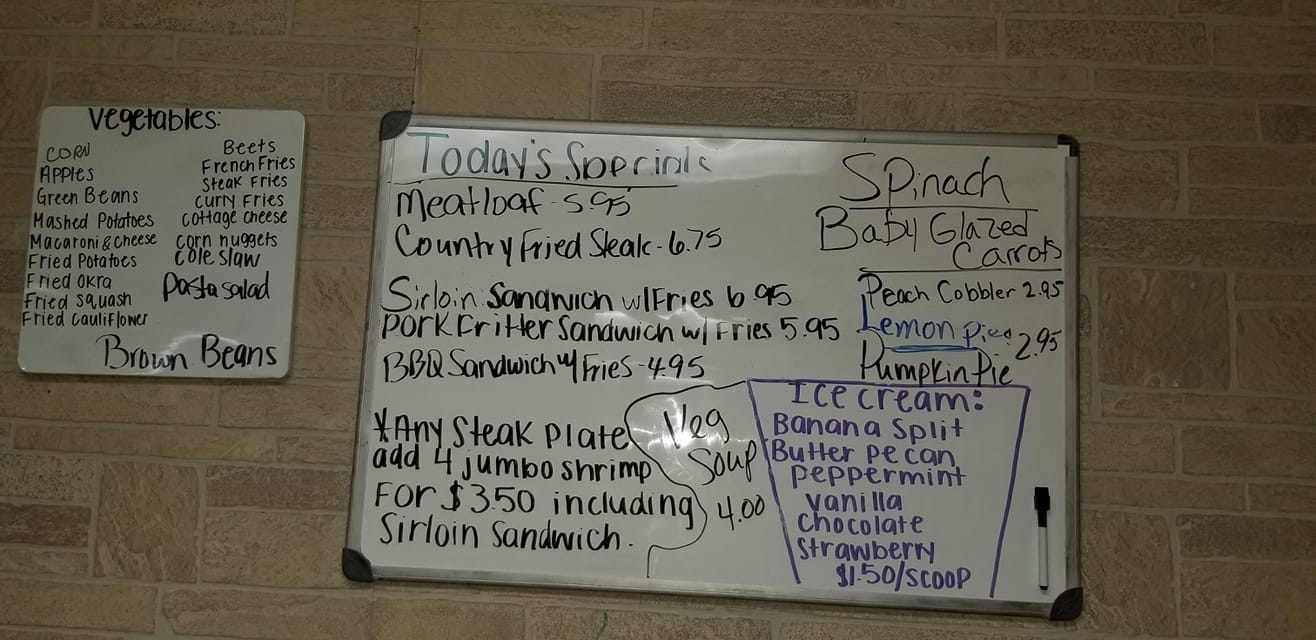 Vegetables:
CORN
APPles
Green Beans
Mashed Potatoes
Macaroni & cheese
Fried Potatoes
Fried Okra
Fried squash
Fried Cauliflower
Beets
French Fries
Steak Fries
curry Fries
cottage cheese
corn nuggets
cole slaw
Pasta salad
Brown Beans
Today's
Meatloaf - 5.95
Country Fried Steak - 6.75
Sirloin Sandwich w/ Fries 6.95
Pork Fritter Sandwich w/ Fries 5.95
BBQ Sandwich w/ Fries - 4.95
*Any Steak Plate
add 4 jumbo shrimp
For $3.50 including
Sirloin Sandwich.
Veg
Soup
4.00
Spinach
Baby Glazed
Carrots
Peach Cobbler 2.95
Lemon Pie
2.95
Pumpkin Pie
Ice cream:
Banana Split
Butter pecan
peppermint
vanilla
chocolate
Strawberry
$1.50/scoop